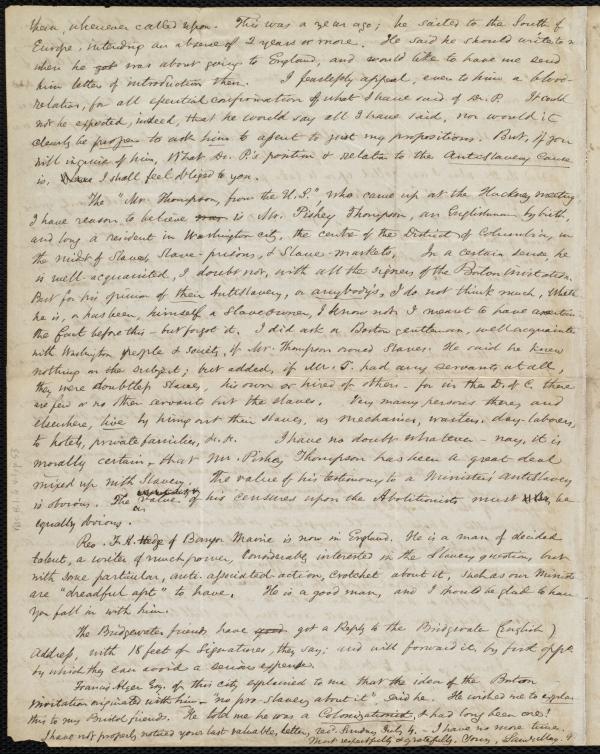 them, whenever called upon. This was a year ago; he sailed to the South of
Europe, intending an absence of 2 years or more. He said he should write to
when he got was about going to England, and would like to have me send
him letters of introduction then. I fearlessly appeal, even to him a blood-
relation, for all essential confirmation of what I have said of Dr. P. It could
not be expected, indeed, that he would say all I have said, nor would it
clearly be proper to ask him to assent to just my propositions. But, if you
will inquire of him, What Dr. P.'s position & relation to the Antislavery Cause
is, I shall feel obliged to you.
The "Mr Thompson, from the U.S.", who came up at the Hackney meeting
I have reason to believe is Mr. Pishey Thompson, an Englishman by birth,
and long a resident in Washington city, the centre of the District of Columbia, in
the midst of Slaves, Slave-prisons, & Slave-markets. In a certain sense he
is well-acquainted, I doubt not, with all the signers of the Boston invitation.
But for his opinion of their Antislavery, or anybody's, I do not think much. Whether
he is, or has been, himself a Slaveowner, I know not. I meant to have
the fact before this – but forgot it. I did ask a Boston gentleman, well acquainted
with Washington people & society, if Mr. Thompson owned Slaves. He said he knew
nothing on the subject; but added, if Mr. T. had any servants at all,
they were doubtless Slaves, his own or hired of others – for in the D. of C. there
are few or no other servants but the slaves. Very many persons there, and
elsewhere, live by hiring out their slaves, as mechanics, waiters, day-laborers,
to hotels, private families, &c. &c. I have no doubt whatever – nay, it is
morally certain – that Mr. Pishey Thompson has been a great deal
mixed up with Slavery. The value of his testimony to a Minister's Antislavery
is obvious. The value of his censures upon the Abolitionists must be
equally obvious.
Rev. F. H. Hedge of Bangor Maine is now in England. He is a man of decided
talent, a writer of much power, considerably interested in the Slavery question, but
with some particular, anti-associated-action, crotchet about it, such as our Ministers
are "dreadful apt" to have. He is a good man, and I should be glad to have
you fall in with him.
The Bridgewater friends have got a Reply to the Bridgwater (English)
Address, with 18 feet of Signatures, they say; and will forward it, by first oppy.
by which they can avoid a serious expense.
Francis Alger Esq. of this city explained to me that the idea of the Boston
invitation originated with him – "no pro-Slavery about it", said he. He wished me to explain
this to my Bristol friends. He told me he was a Colonizationist, & had long been one!
I have not properly noticed your last valuable letter, recd. Sunday July 4. – I have no more time.
Most respectfully & gratefully, Yours, Saml. May, Jr.